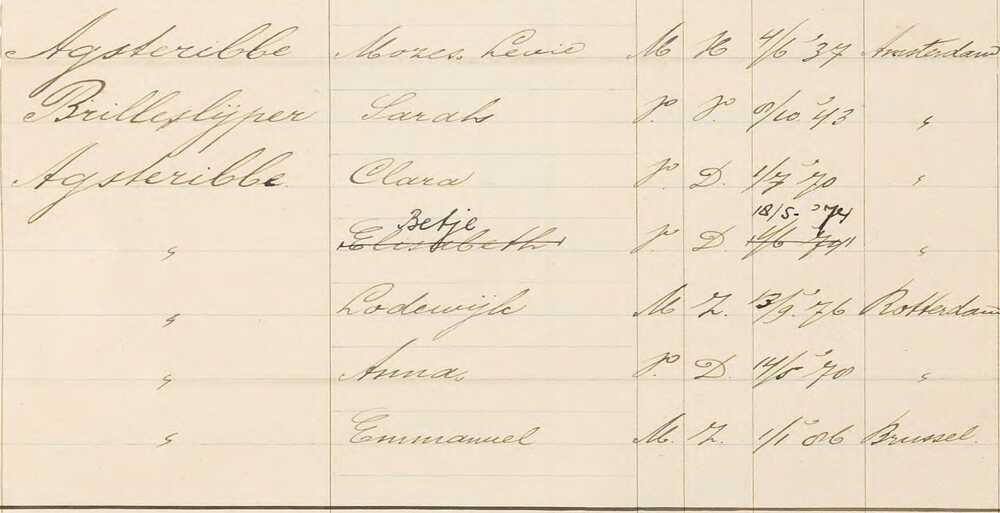 Agsteribbe Mozes Levie M H 4/6 '37 Amsterdam
Brilleslijper Sarah V. V. 9/10 '43 "
Agsteribbe. Clara V D. 1/7 '70 "
Betje 18/5- '74
" Elisabeth V D. "
" Lodewijk M Z. 13/9. '76 Rotterdam
" Anna. V. D. 14/5 '78 "
" Emmanuel M. Z. 1/1 '86 Brussel.